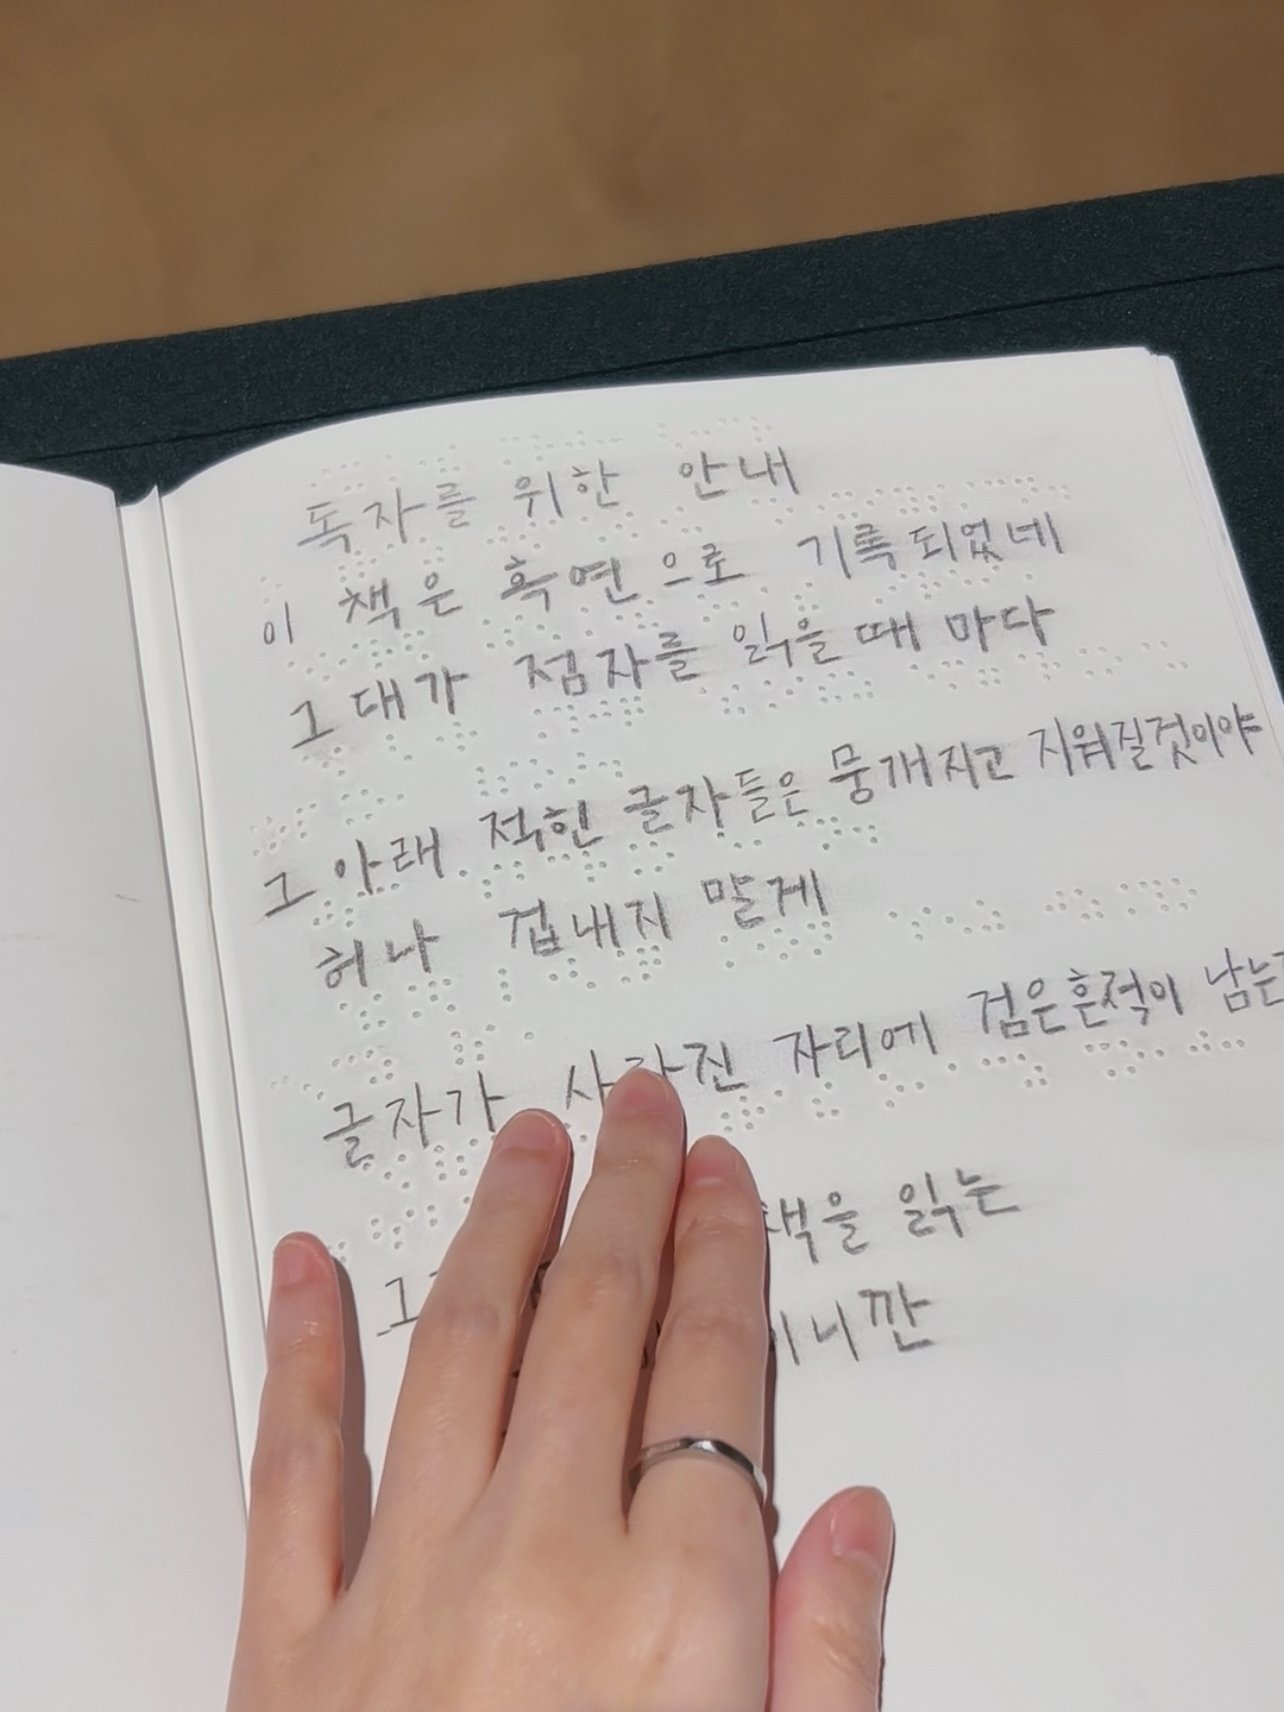 독자를 위한 안내
이 책은 흑연으로 기록되었네
그대가 점자를 읽을 때 마다
그 아래 적힌 글자들은 뭉개지고 지워질것이야
허나 겁내지 말게
글자가 자리에 검은흔적이 남는
을 읽는